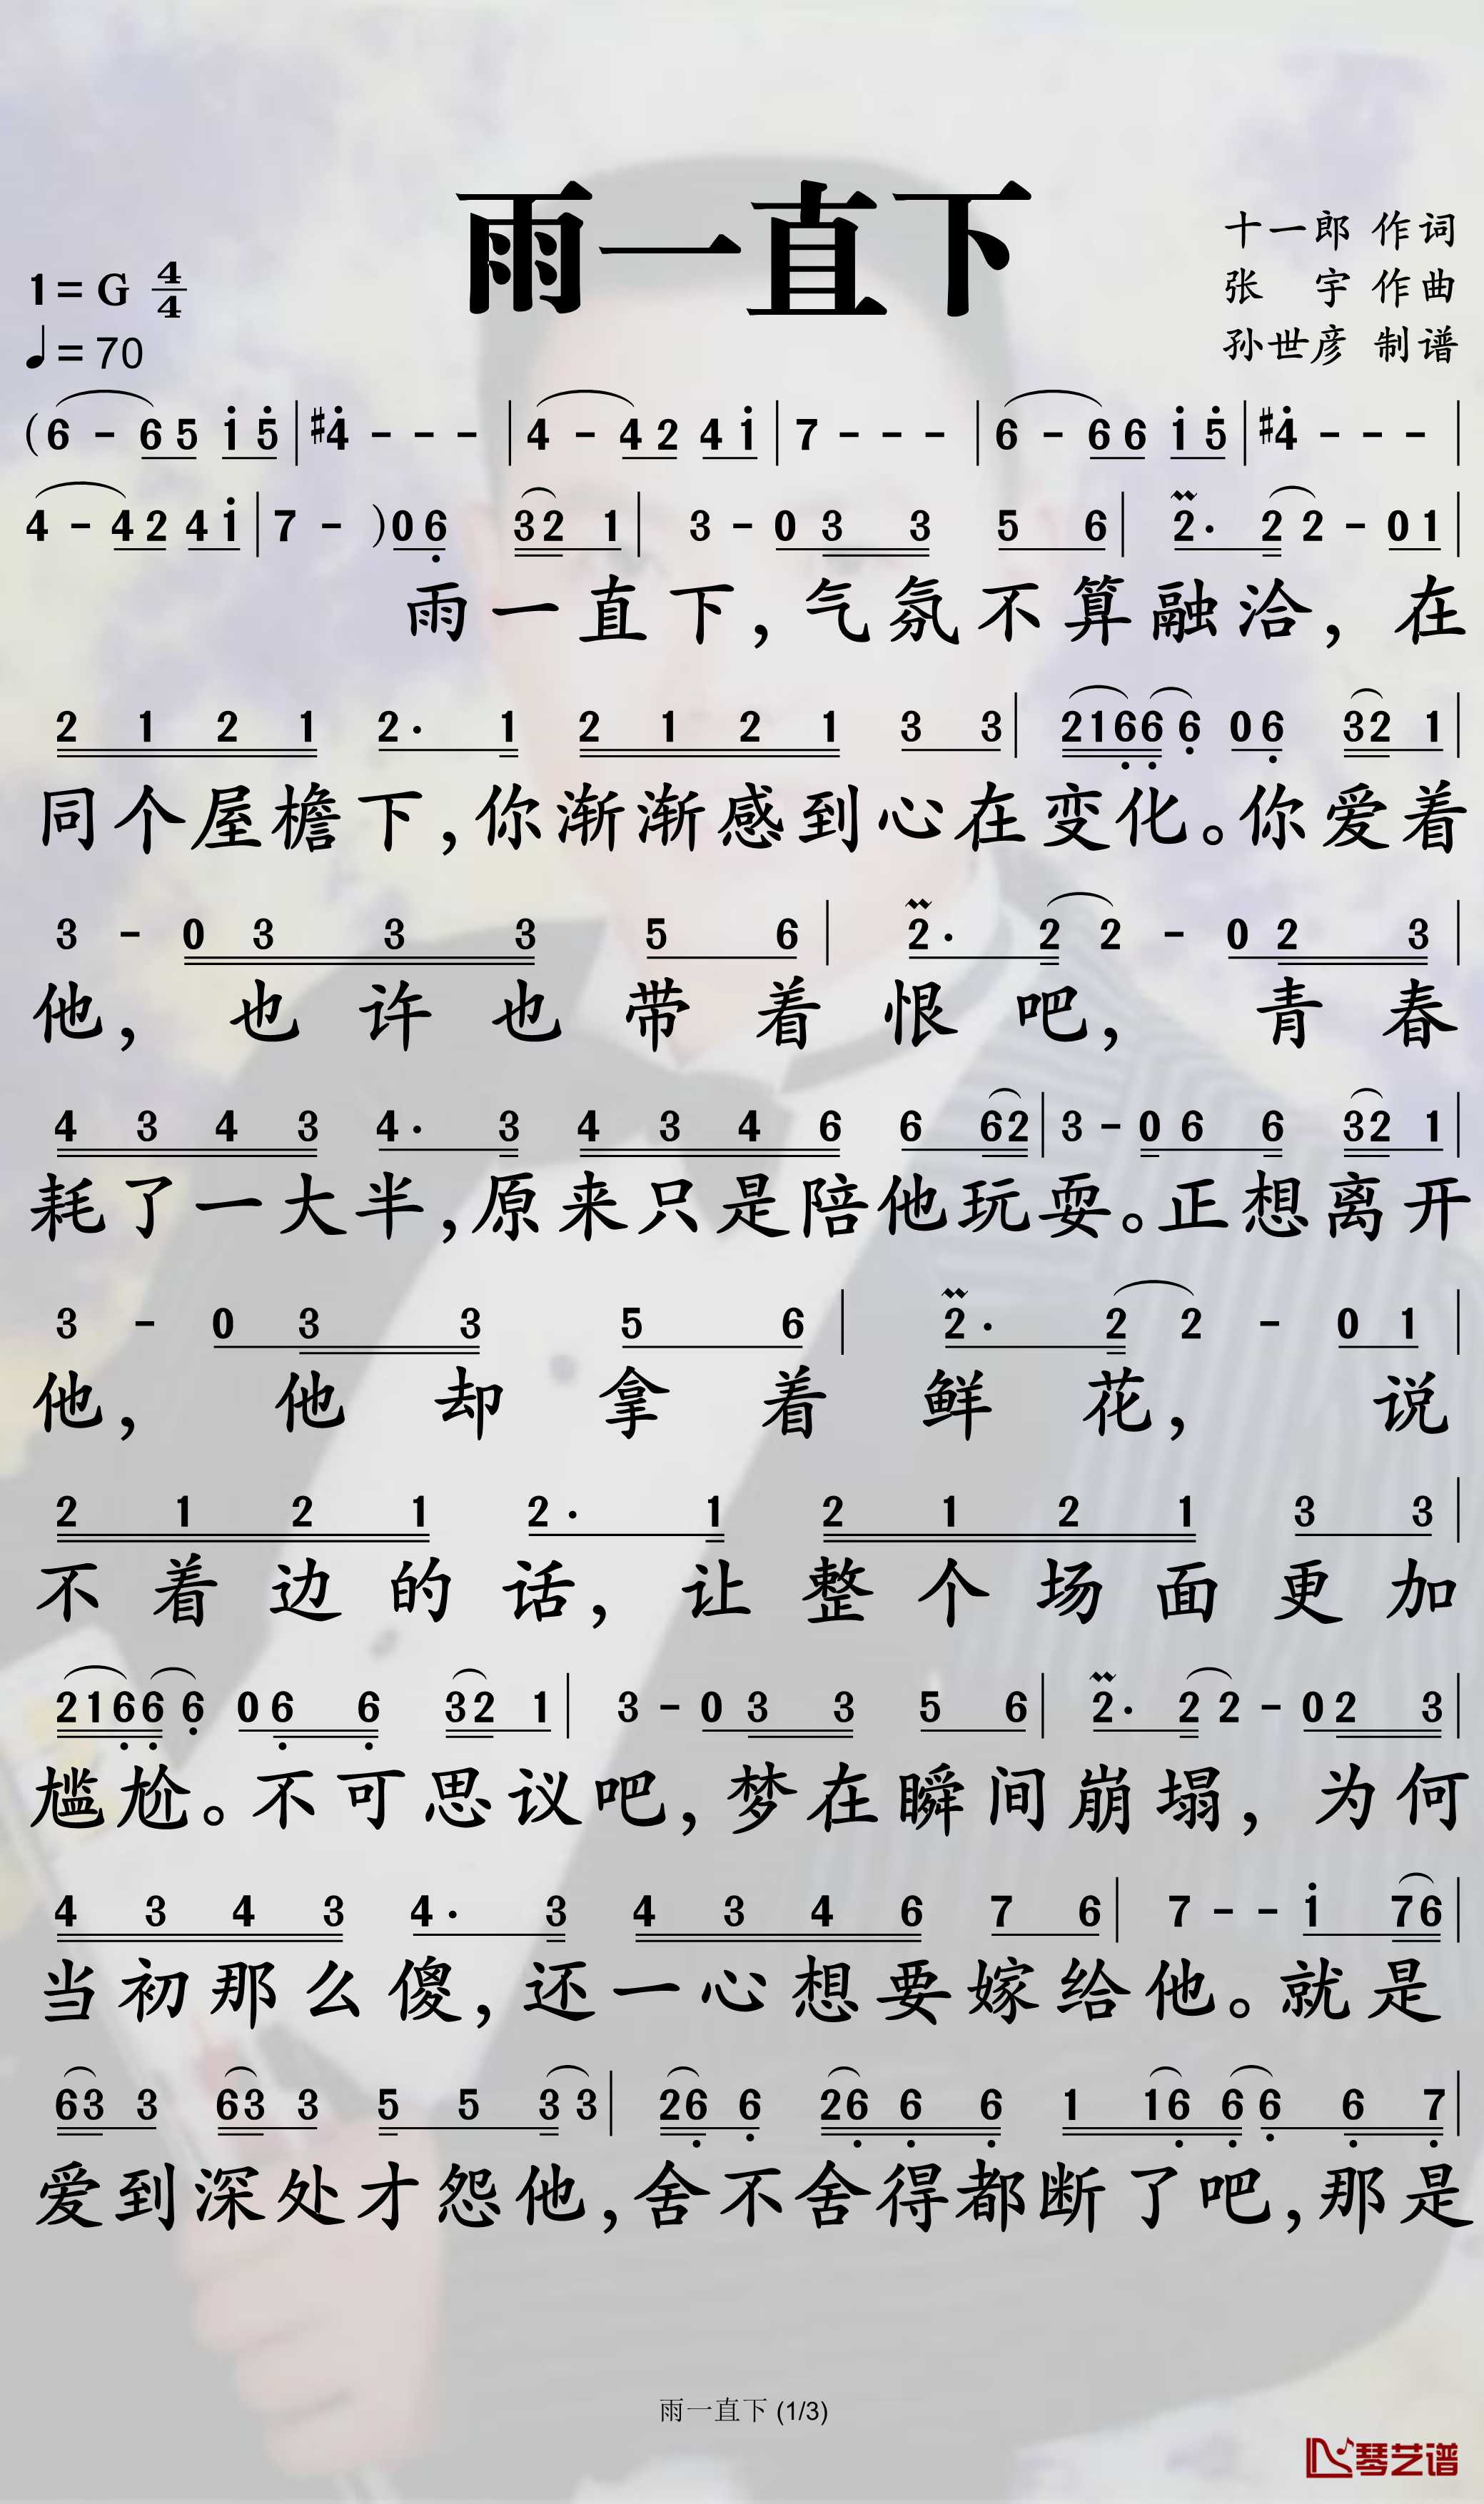 雨一直下
十一郎 作词
1=G 4/4
张 宇 作曲
♩=70
孙世彦 制谱
(6 - 6 5 1̇ 5̇ | #4̇ - - - | 4 - 4 2 4 1̇ | 7 - - - | 6 - 6 6 1̇ 5̇ | #4̇ - - - |
4 - 4 2 4 1̇ | 7 - ) 0 6̣ 3 2 1 | 3 - 0 3 3 5 6 | 2· 2 2 - 0 1 |
雨一直下，气氛不算融洽，在
2 1 2 1 2· 1 2 1 2 1 3 3 | 2 1 6̣ 6̣ 6̣ 0 6̣ 3 2 1 |
同个屋檐下，你渐渐感到心在变化。你爱着
3 - 0 3 3 3 5 6 | 2· 2 2 - 0 2 3 |
他，也许也带着恨吧，青春
4 3 4 3 4· 3 4 3 4 6 6 6 2 | 3 - 0 6 6 3 2 1 |
耗了一大半，原来只是陪他玩耍。正想离开
3 - 0 3 3 5 6 | 2· 2 2 - 0 1 |
他，他却拿着鲜花，说
2 1 2 1 2· 1 2 1 2 1 3 3 |
不着边的话，让整个场面更加
2 1 6̣ 6̣ 6̣ 0 6̣ 6̣ 3 2 1 | 3 - 0 3 3 5 6 | 2· 2 2 - 0 2 3 |
尴尬。不可思议吧，梦在瞬间崩塌，为何
4 3 4 3 4· 3 4 3 4 6 7 6 | 7 - - 1̇ 7 6 |
当初那么傻，还一心想要嫁给他。就是
6 3 3 6 3 3 5 5 3 3 | 2 6̣ 6̣ 2 6̣ 6̣ 6̣ 1 1 6̣ 6̣ 6̣ 6̣ 7̣ |
爱到深处才怨他，舍不舍得都断了吧，那是
雨一直下 (1/3)
琴艺谱